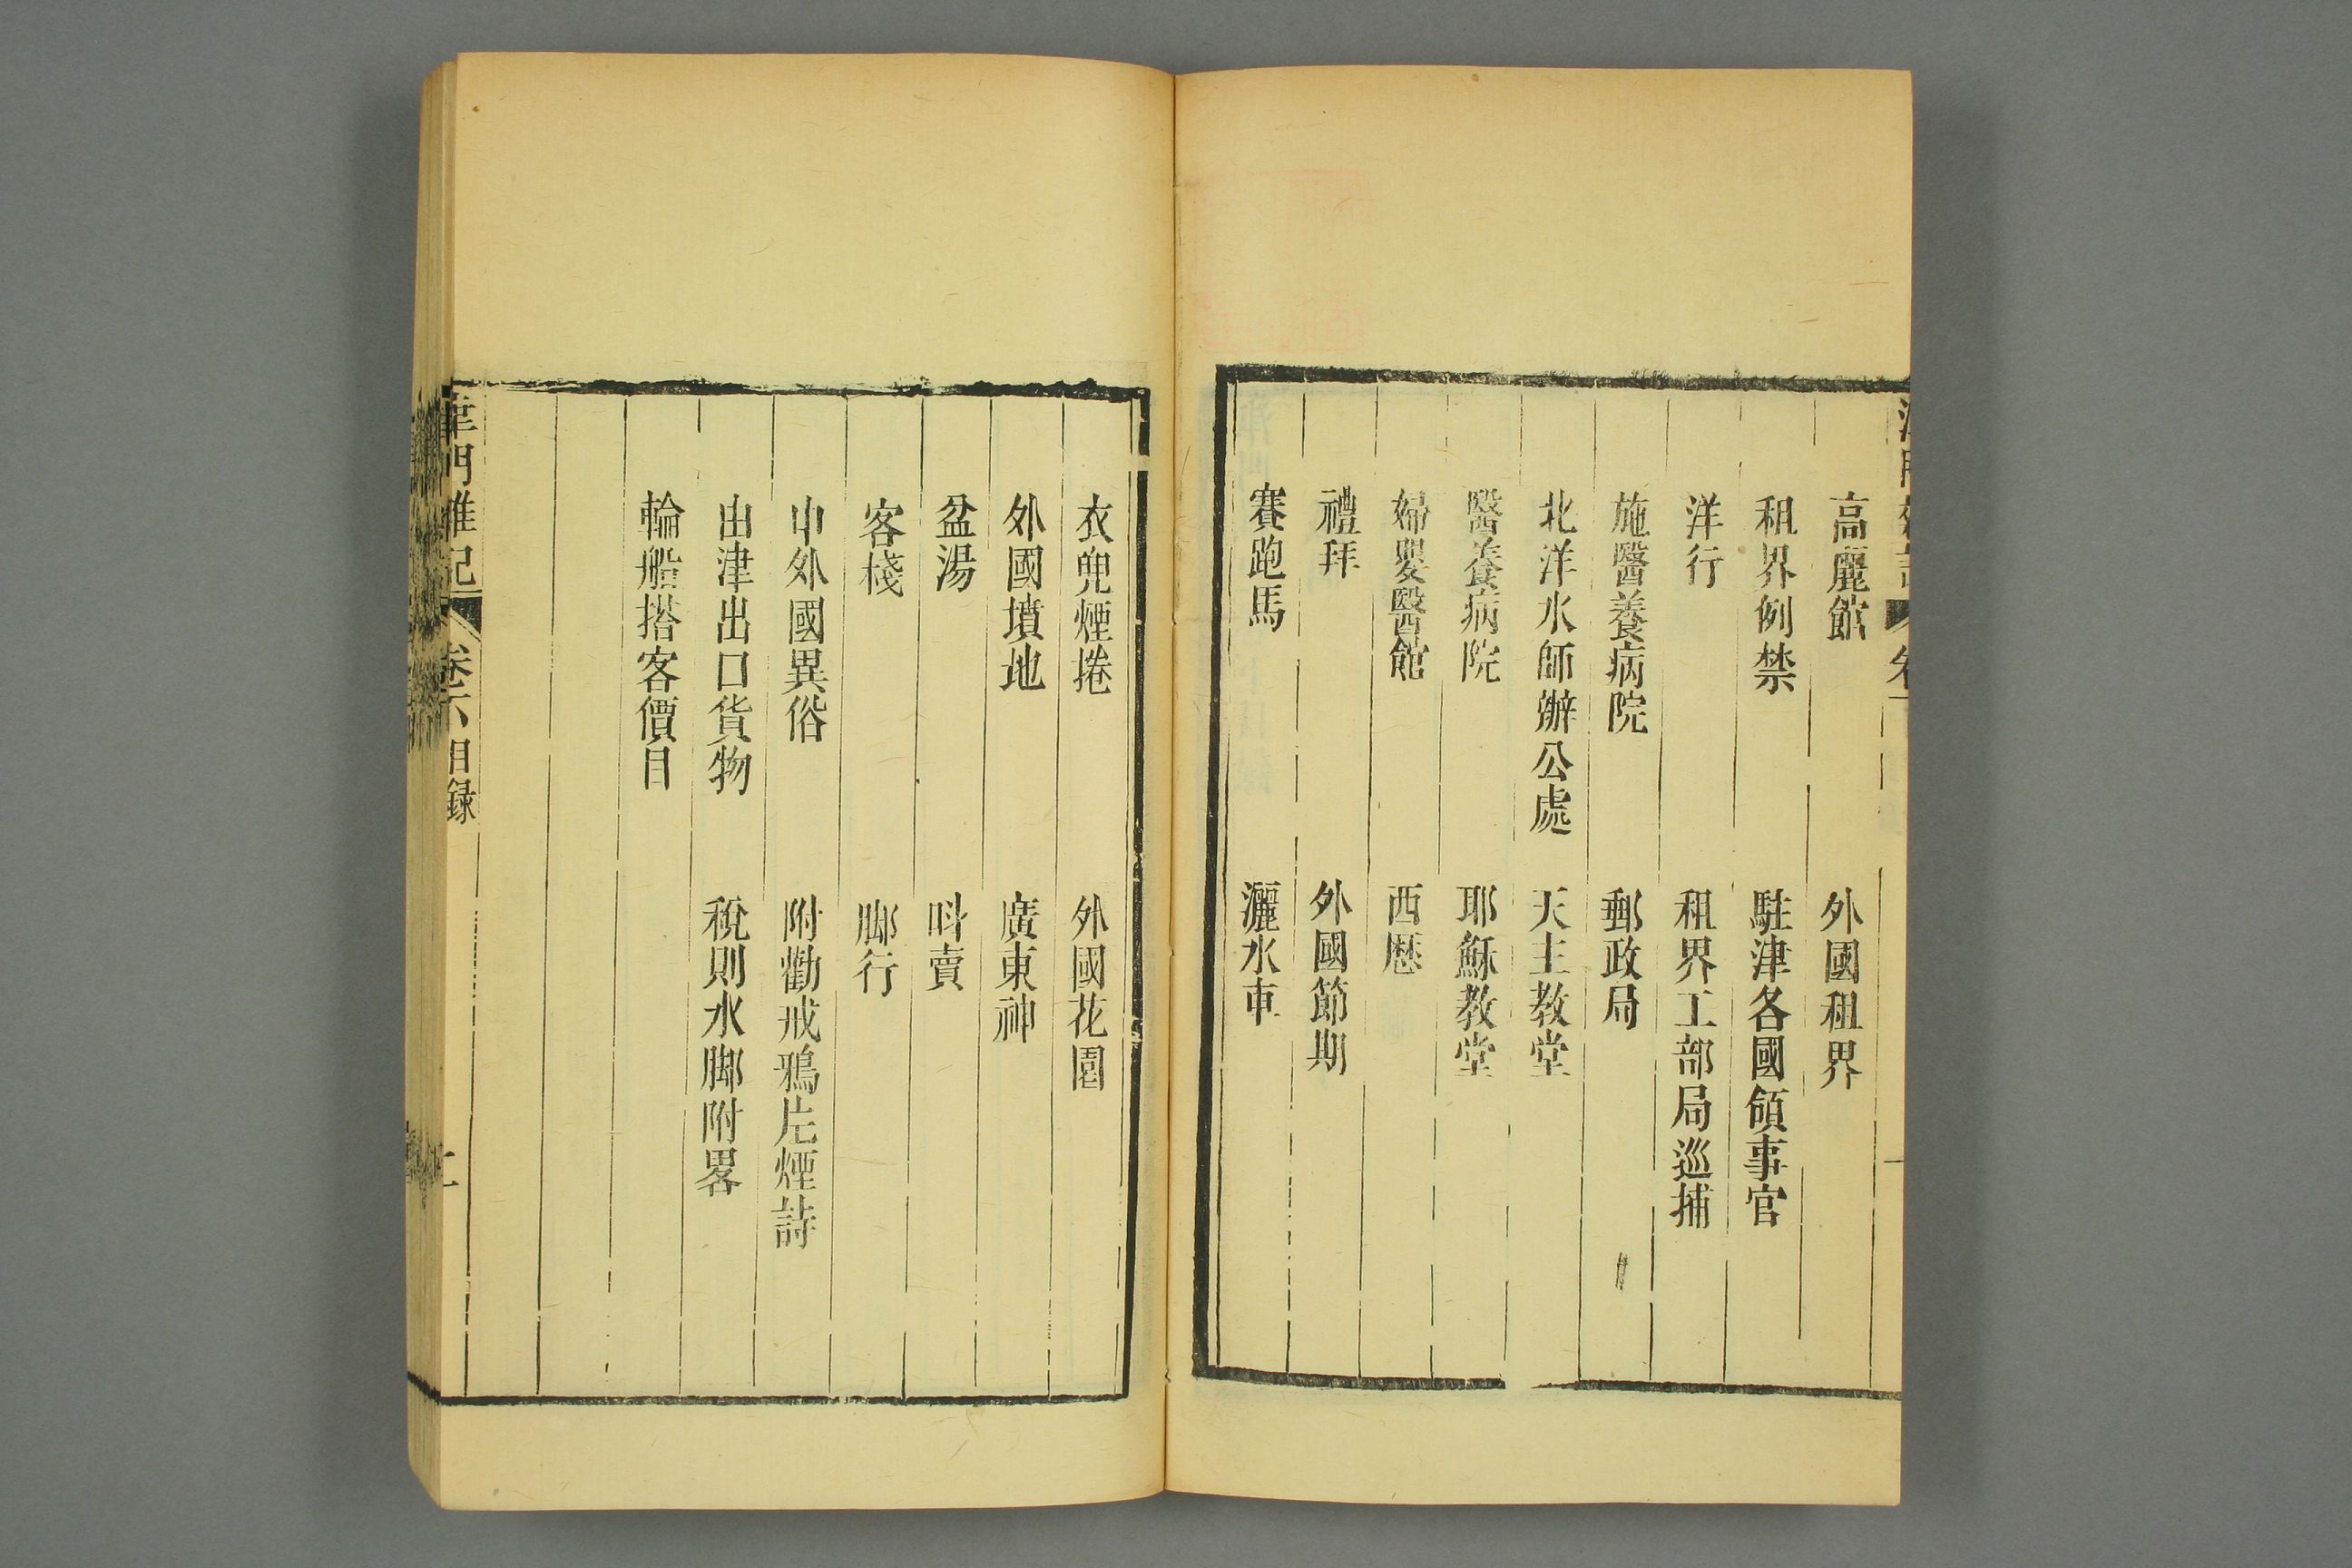 高麗館　外國租界
租界例禁　駐津各國領事官
洋行　租界工部局巡捕
施醫養病院　郵政局
北洋水師辦公處　天主教堂
醫養病院　耶穌教堂
婦嬰醫館　西歷
禮拜　外國節期
賽跑馬　灑水車
衣兜煙捲　外國花園
外國墳地　廣東神
盆湯　呌賣
客棧　脚行
中外國異俗　附勸戒鴉片煙詩
由津出口貨物　稅則水脚附畧
輪船搭客價目
津門雜記　卷下目錄　二